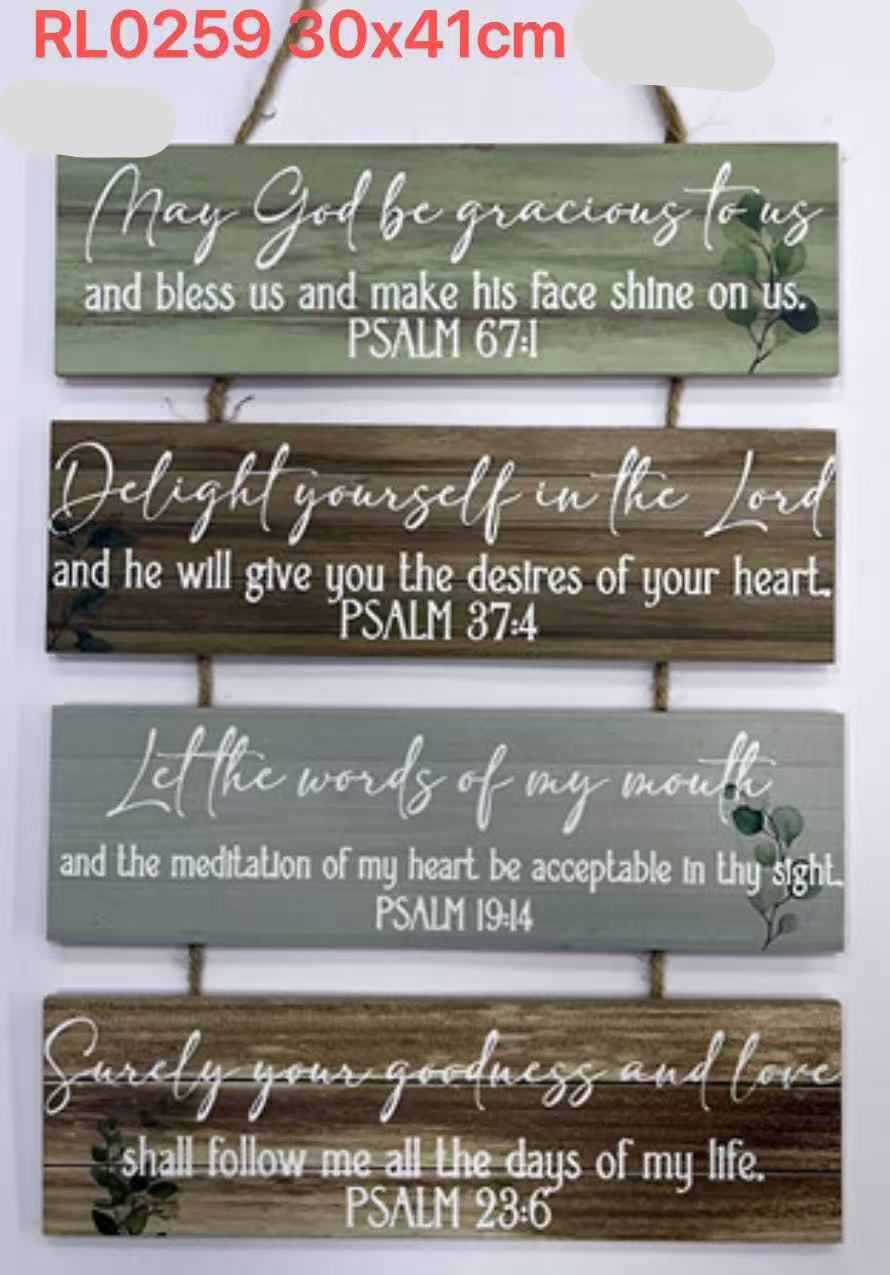 RL0259 30x41cm
May God be gracious to us
and bless us and make his face shine on us.
PSALM 67:1
Delight yourself in the Lord
and he will give you the desires of your heart.
PSALM 37:4
Let the words of my mouth
and the meditation of my heart be acceptable in thy sight.
PSALM 19:14
Surely your goodness and love
shall follow me all the days of my life.
PSALM 23:6